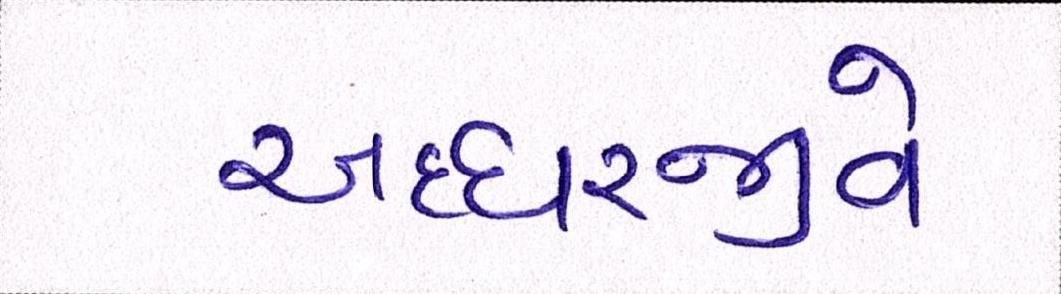 અદ્ધરજીવે